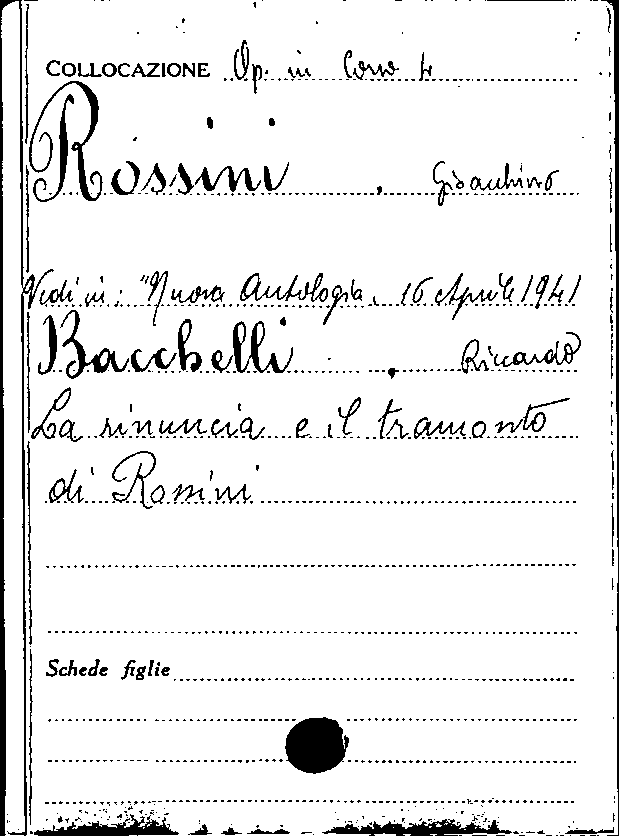 COLLOCAZIONE Op. in Corso 4
Rossini, Gioachino
Vedi in: "Nuova Antologia, 16 Aprile 1941
Bacchelli, Riccardo
La rinuncia e il tramonto
di Rossini
Schede figlie